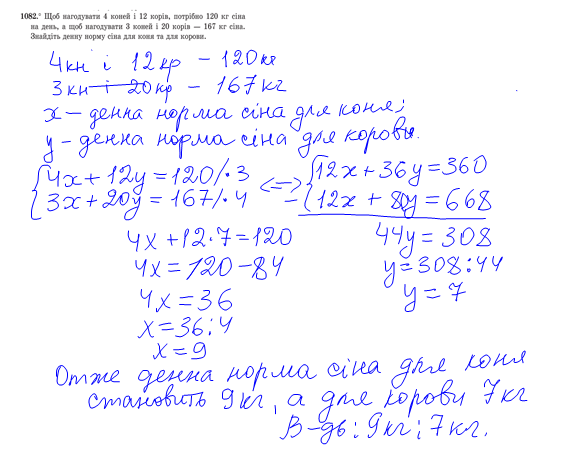 1082.° Щоб нагодувати 4 коней і 12 корів, потрібно 120 кг сіна
на день, а щоб нагодувати 3 коней і 20 корів — 167 кг сіна.
Знайдіть денну норму сіна для коня та для корови.
4кн і 12кр – 120кг
3кн і 20кр – 167кг
x – денна норма сіна для коня;
y – денна норма сіна для корови.
{4x + 12y = 120 /·3 <=> {12x + 36y = 360
{3x + 20y = 167 /·4 – {12x + 80y = 668
4x + 12·7 = 120 44y = 308
4x = 120 – 84 y = 308:44
4x = 36 y = 7
x = 36:4
x = 9
Отже денна норма сіна для коня
становить 9кг, а для корови 7кг
В-дь: 9кг; 7кг.